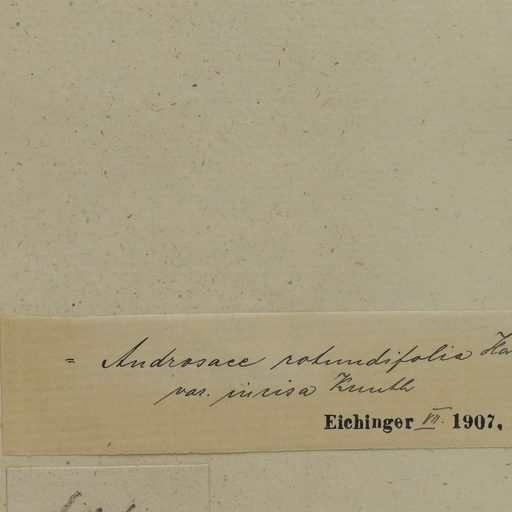 = Androsace rotundifolia Ha
var. incisa Knuth
Eichinger VII. 1907,